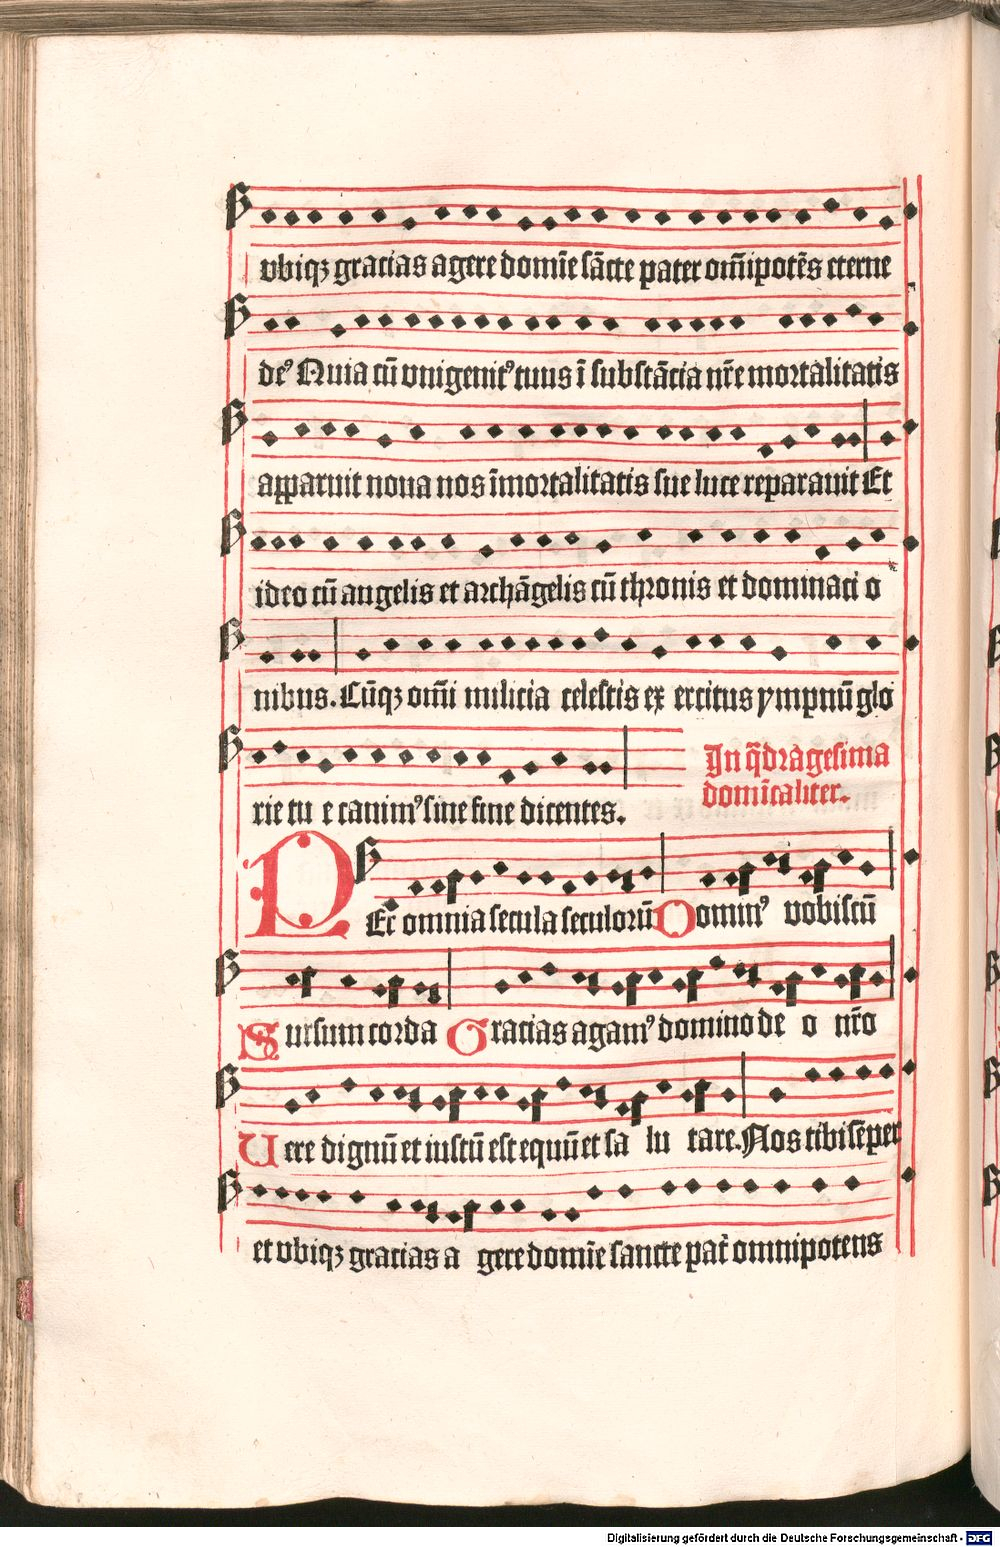 vbiqꝫ gracias agere domīe sācte pater om̄ipotēs eterne
de⁹ Quia cū vnigenit⁹ tuus ī substācia nr̄e mortalitatis
apparuit noua nos īmortalitatis sue luce reparauit Et
ideo cū angelis et archāgelis cū thronis et dominaci o
nibus. Cūqꝫ om̄i milicia celestis ex ercitus ympnū glo
rie tu e canim⁹ sine fine dicentes.
In q̄dragesima
domīcaliter.
PEr omnia secula seculorū Domin⁹ vobiscū
Sursum corda Gracias agam⁹ domino de o nr̄o
Uere dignū et iustū est equū et sa lu tare. Nos tibi sēper
et vbiqꝫ gracias a gere domīe sancte pat̄ omnipotens
Digitalisierung gefördert durch die Deutsche Forschungsgemeinschaft - DFG